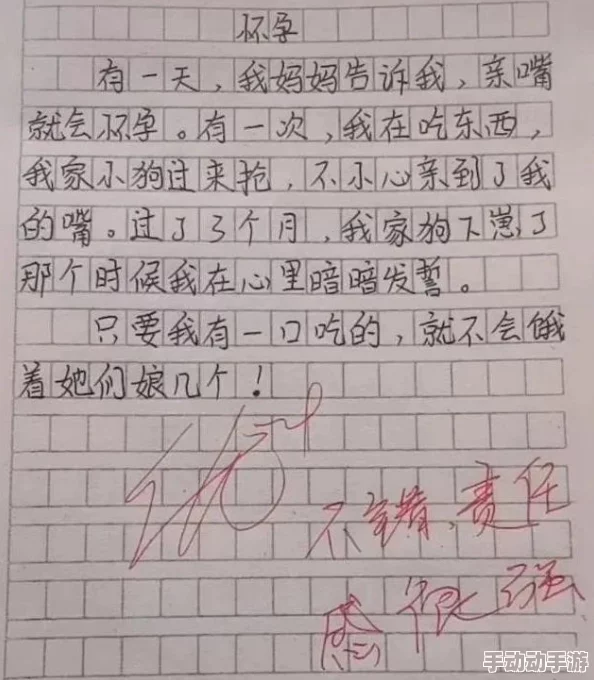 怀孕
有一天，我妈妈告诉我，亲嘴
就会怀孕。有一次，我在吃东西，
我家小狗过来抢，不小心亲到了我
的嘴。过了3个月，我家狗下崽了
那个时候我在心里暗暗发誓。
只要我有一口吃的，就不会饿
着她们娘几个！
不错，责任
感很强
手动动手游